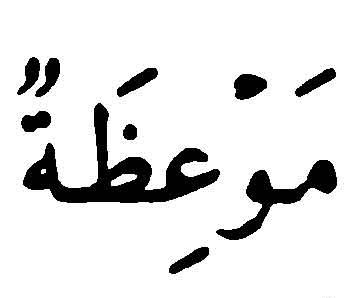 مَوْعِظَةً